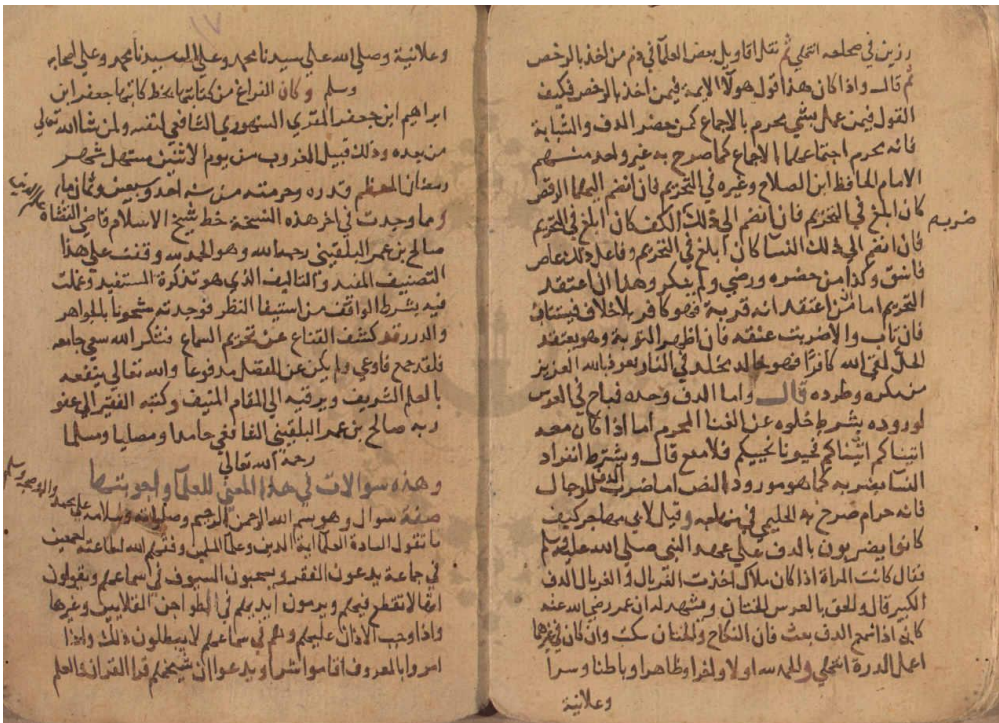 رزين في مصلحه انتهي ثم نقل اقاويل بعض العلما في ذم من اخذ بالرخص
ثم قال واذا كان هذا قول هولآ الايمة فيمن اخذ بالرخص فكيف
القول فيمن عمل بشي محرم بالاجماع كمن حضر الدف والشبابة
فانه يحرم اجتماعهما بالاجماع كما صرح به غير واحد منهم
الامام الحافظ ابن الصلاح وغيره في التحريم فان انضم اليهما الرقص
كان ابلغ في التحريم فان انضم الي ذلك الكف كان ابلغ في التحريم
ضربه
فان انضم الي ذلك النسا كان ابلغ في التحريم وفاعل ذلك عاص
فاسق وكذا من حضره ورضي ولم ينكر وهذا ان اعتقد
التحريم اما من اعتقد انه قربة فهو كافر بلا خلاف فيستتاب
فان تاب والا ضربت عنقه فان اظهر التوبة وهو يعتقد
الحل لقي الله كافرا فهو خالد مخلد في النار نعوذ بالله العزيز
من مكره وطرده قال واما الدف وحده فباح في العرس
لوروده بشرط خلوه عن الغنا المحرم اما اذا كان معه
اتيناكم اتيناكم فحيونا نحييكم فلا منع قال ويشترط انفراد
النسا بضربه كما هو مورود النص اما ضرب الدف للرجال
فانه حرام صرح به الحليمي في منهاجه وقيل لابي مهاجر كيف
كانوا يضربون بالدف علي عهد النبي صلي الله عليه وسلم
فقال كانت المراة اذا كان ملاك اخذت الغربال والغربال الدف
الكبير قال والحق بالعرس الختان ويشهد له ان عمر رضي الله عنه
كان اذا سمع الدف بعث فان النكاح والختان سكت وان كان في غيرهما
اعمل الدرة انتهي ولله الحمد اولا واخرا وظاهرا وباطنا وسرا
وعلانية
وعلانية وصلي الله علي سيدنا محمد وعلي ال سيدنا محمد وعلي اصحابه
وسلم وكان الفراغ من كتابتها بخط كاتبها جعفر ابن
ابراهيم ابن جعفر المقري السنهوري الشافعي لنفسه ولمن شا الله تعالي
من بعده وذلك قبيل الغروب من يوم الاثنين مستهل شهر
رمضان المعظم قدره وحرمته من سنه احد وسبعين وثمان مايه
علم الدين
ومما وجدت في اخر هذه النسخة خط شيخ الاسلام قاضي القضاة
صالح بن عمر البلقيني رحمه الله وهو الحمد لله وقفت علي هذا
التصنيف المفيد والتاليف الذي هو تذكرة المستفيد وعملت
فيه بشرط الواقف من استيفا النظر فوجدته مشحونا بالجواهر
والدرر قد كشف القناع عن تحريم السماع فشكر الله سعي جامعه
فلقد جمع فاوعي ولم يكن عن الفضل مدفوعا والله تعالي ينفعه
بالعلم الشريف ويرقيه الي المقام المنيف وكتبه الفقير الي عفو
ربه صالح بن عمر البلقيني الشافعي حامدا ومصليا ومسلما
رحمه الله تعالي
وهذه سوالات في هذا المعني للعلما واجوبتها
صفة سوال وهو بسم الله الرحمن الرحيم وصلواته وسلامه علي محمد واله وصحبه وسلم
ما تقول السادة العلما ايمة الدين وعلما المسلمين وفقهم الله لطاعته اجمعين
في جماعة يدعون الفقر ويسحبون السيوف في سماعهم ويقولون
انها لا تقطع فيهم ويرمون ايديهم في الطواجن الغلايين وغيرها
واذا وجب الاذان عليهم وهم في سماعهم لا يبطلون ذلك واذا
امروا بالمعروف اقاموا شرا ويدعوا ان شيخهم قرا القران والعلم